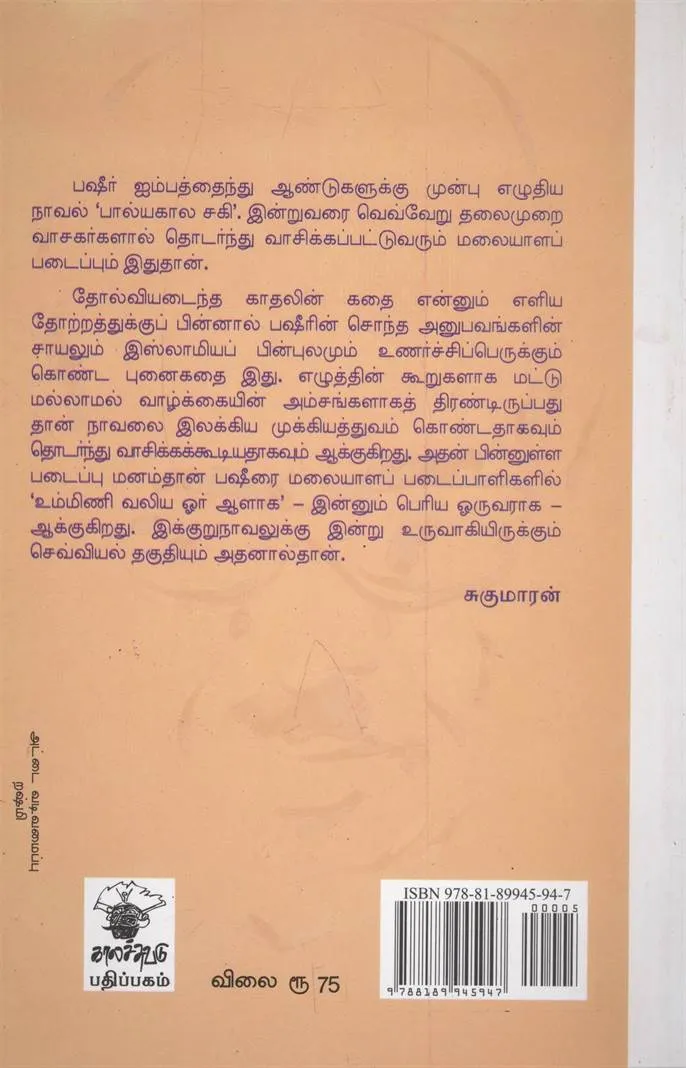 பஷீர் ஐம்பத்தைந்து ஆண்டுகளுக்கு முன்பு எழுதிய
நாவல் ‘பால்யகால சகி’. இன்றுவரை வெவ்வேறு தலைமுறை
வாசகர்களால் தொடர்ந்து வாசிக்கப்பட்டுவரும் மலையாளப்
படைப்பும் இதுதான்.
தோல்வியடைந்த காதலின் கதை என்னும் எளிய
தோற்றத்துக்குப் பின்னால் பஷீரின் சொந்த அனுபவங்களின்
சாயலும் இஸ்லாமியப் பின்புலமும் உணர்ச்சிப்பெருக்கும்
கொண்ட புனைகதை இது. எழுத்தின் கூறுகளாக மட்டு
மல்லாமல் வாழ்க்கையின் அம்சங்களாகத் திரண்டிருப்பது
தான் நாவலை இலக்கிய முக்கியத்துவம் கொண்டதாகவும்
தொடர்ந்து வாசிக்கக்கூடியதாகவும் ஆக்குகிறது. அதன் பின்னுள்ள
படைப்பு மனம்தான் பஷீரை மலையாளப் படைப்பாளிகளில்
‘உம்மிணி வலிய ஓர் ஆளாக’ – இன்னும் பெரிய ஒருவராக –
ஆக்குகிறது. இக்குறுநாவலுக்கு இன்று உருவாகியிருக்கும்
செவ்வியல் தகுதியும் அதனால்தான்.
சுகுமாரன்
அட்டை வடிவமைப்பு
றஷ்மி
காலச்சுவடு
பதிப்பகம்
விலை ரூ 75
ISBN 978-81-89945-94-7
00005
9 788189 945947